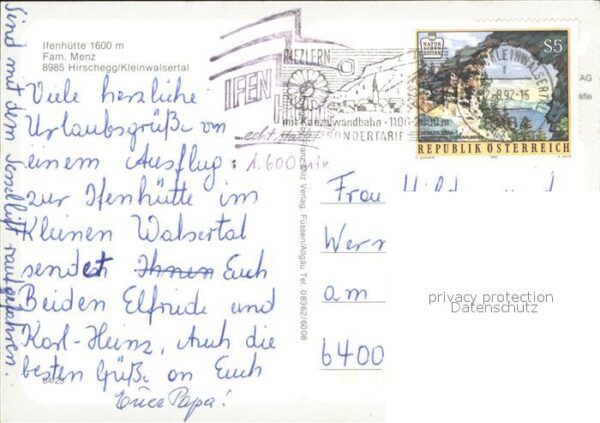 Ifenhütte 1600 m
Fam. Menz
8985 Hirschegg/Kleinwalsertal
Viele herzliche
Urlaubsgrüße von
einem Ausflug:
zur Ifenhütte im
Kleinen Walsertal
sendet Ihnen Euch
Beiden Elfriede und
Karl-Heinz, Auch die
besten Grüße an Euch
Eure Papa!
Sind mit dem Sessellift raufgefahren.
IFEN
1.600 mtr.
RIEZLERN
mit Kanzelwandbahn · 1100-2000 m
SONDERTARIF
KLEINWALSERTAL
-8.92-16
NATUR
S5
REPUBLIK ÖSTERREICH
AG
Verlag, Füssen/Allgäu Tel. 08362/6008
Frau
Wern
am
6400
privacy protection
Datenschutz